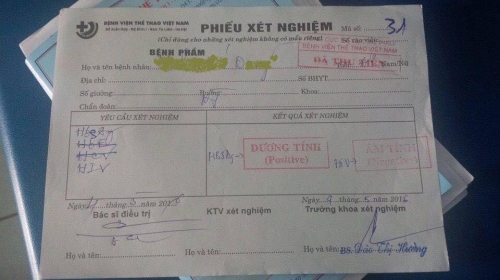 BỆNH VIỆN THỂ THAO VIỆT NAM
PHIẾU XÉT NGHIỆM
Mã số: 31
(Chỉ dùng cho những xét nghiệm không có mẫu riêng)
Số vào viện
BỆNH PHẨM
BỆNH VIỆN THỂ THAO VIỆT NAM
ĐÃ THU TIỀN
Họ và tên bệnh nhân:
Nam/Nữ
Địa chỉ:
Số BHYT
Số giường:
Buồng
Khoa:
Chẩn đoán:
YÊU CẦU XÉT NGHIỆM
KẾT QUẢ XÉT NGHIỆM
HBsAg
HIV
HBsAg
DƯƠNG TÍNH
(Positive)
ÂM TÍNH
Ngày tháng năm
Ngày 9 tháng 5 năm
Bác sĩ điều trị
KTV xét nghiệm
Trưởng khoa xét nghiệm
Họ và tên:
Họ và tên:
Họ và tên: BS. Đào Thị Hường